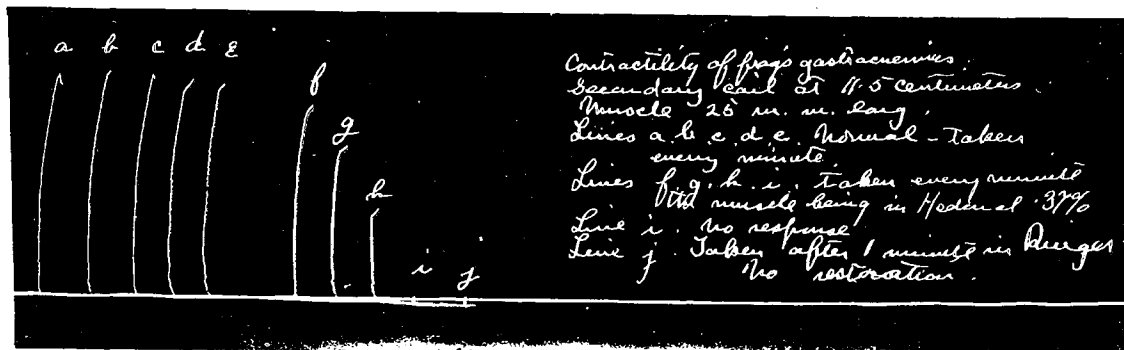 a b c d e
f
g
h
i j
Contractility of frog's gastrocnemius.
Secondary coil at 11.5 centimeters.
Muscle 25 m.m. long.
Lines a. b. c. d. e. Normal - taken
every minute.
Lines f. g. h. i. taken every minute
muscle being in Hedonal .37%
Line i. no response
Line j. Taken after 1 minute in Ringer
No restoration.